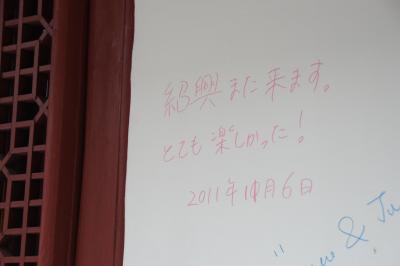 紹興また来ます。
とても楽しかった!
2011年10月6日
& Ju